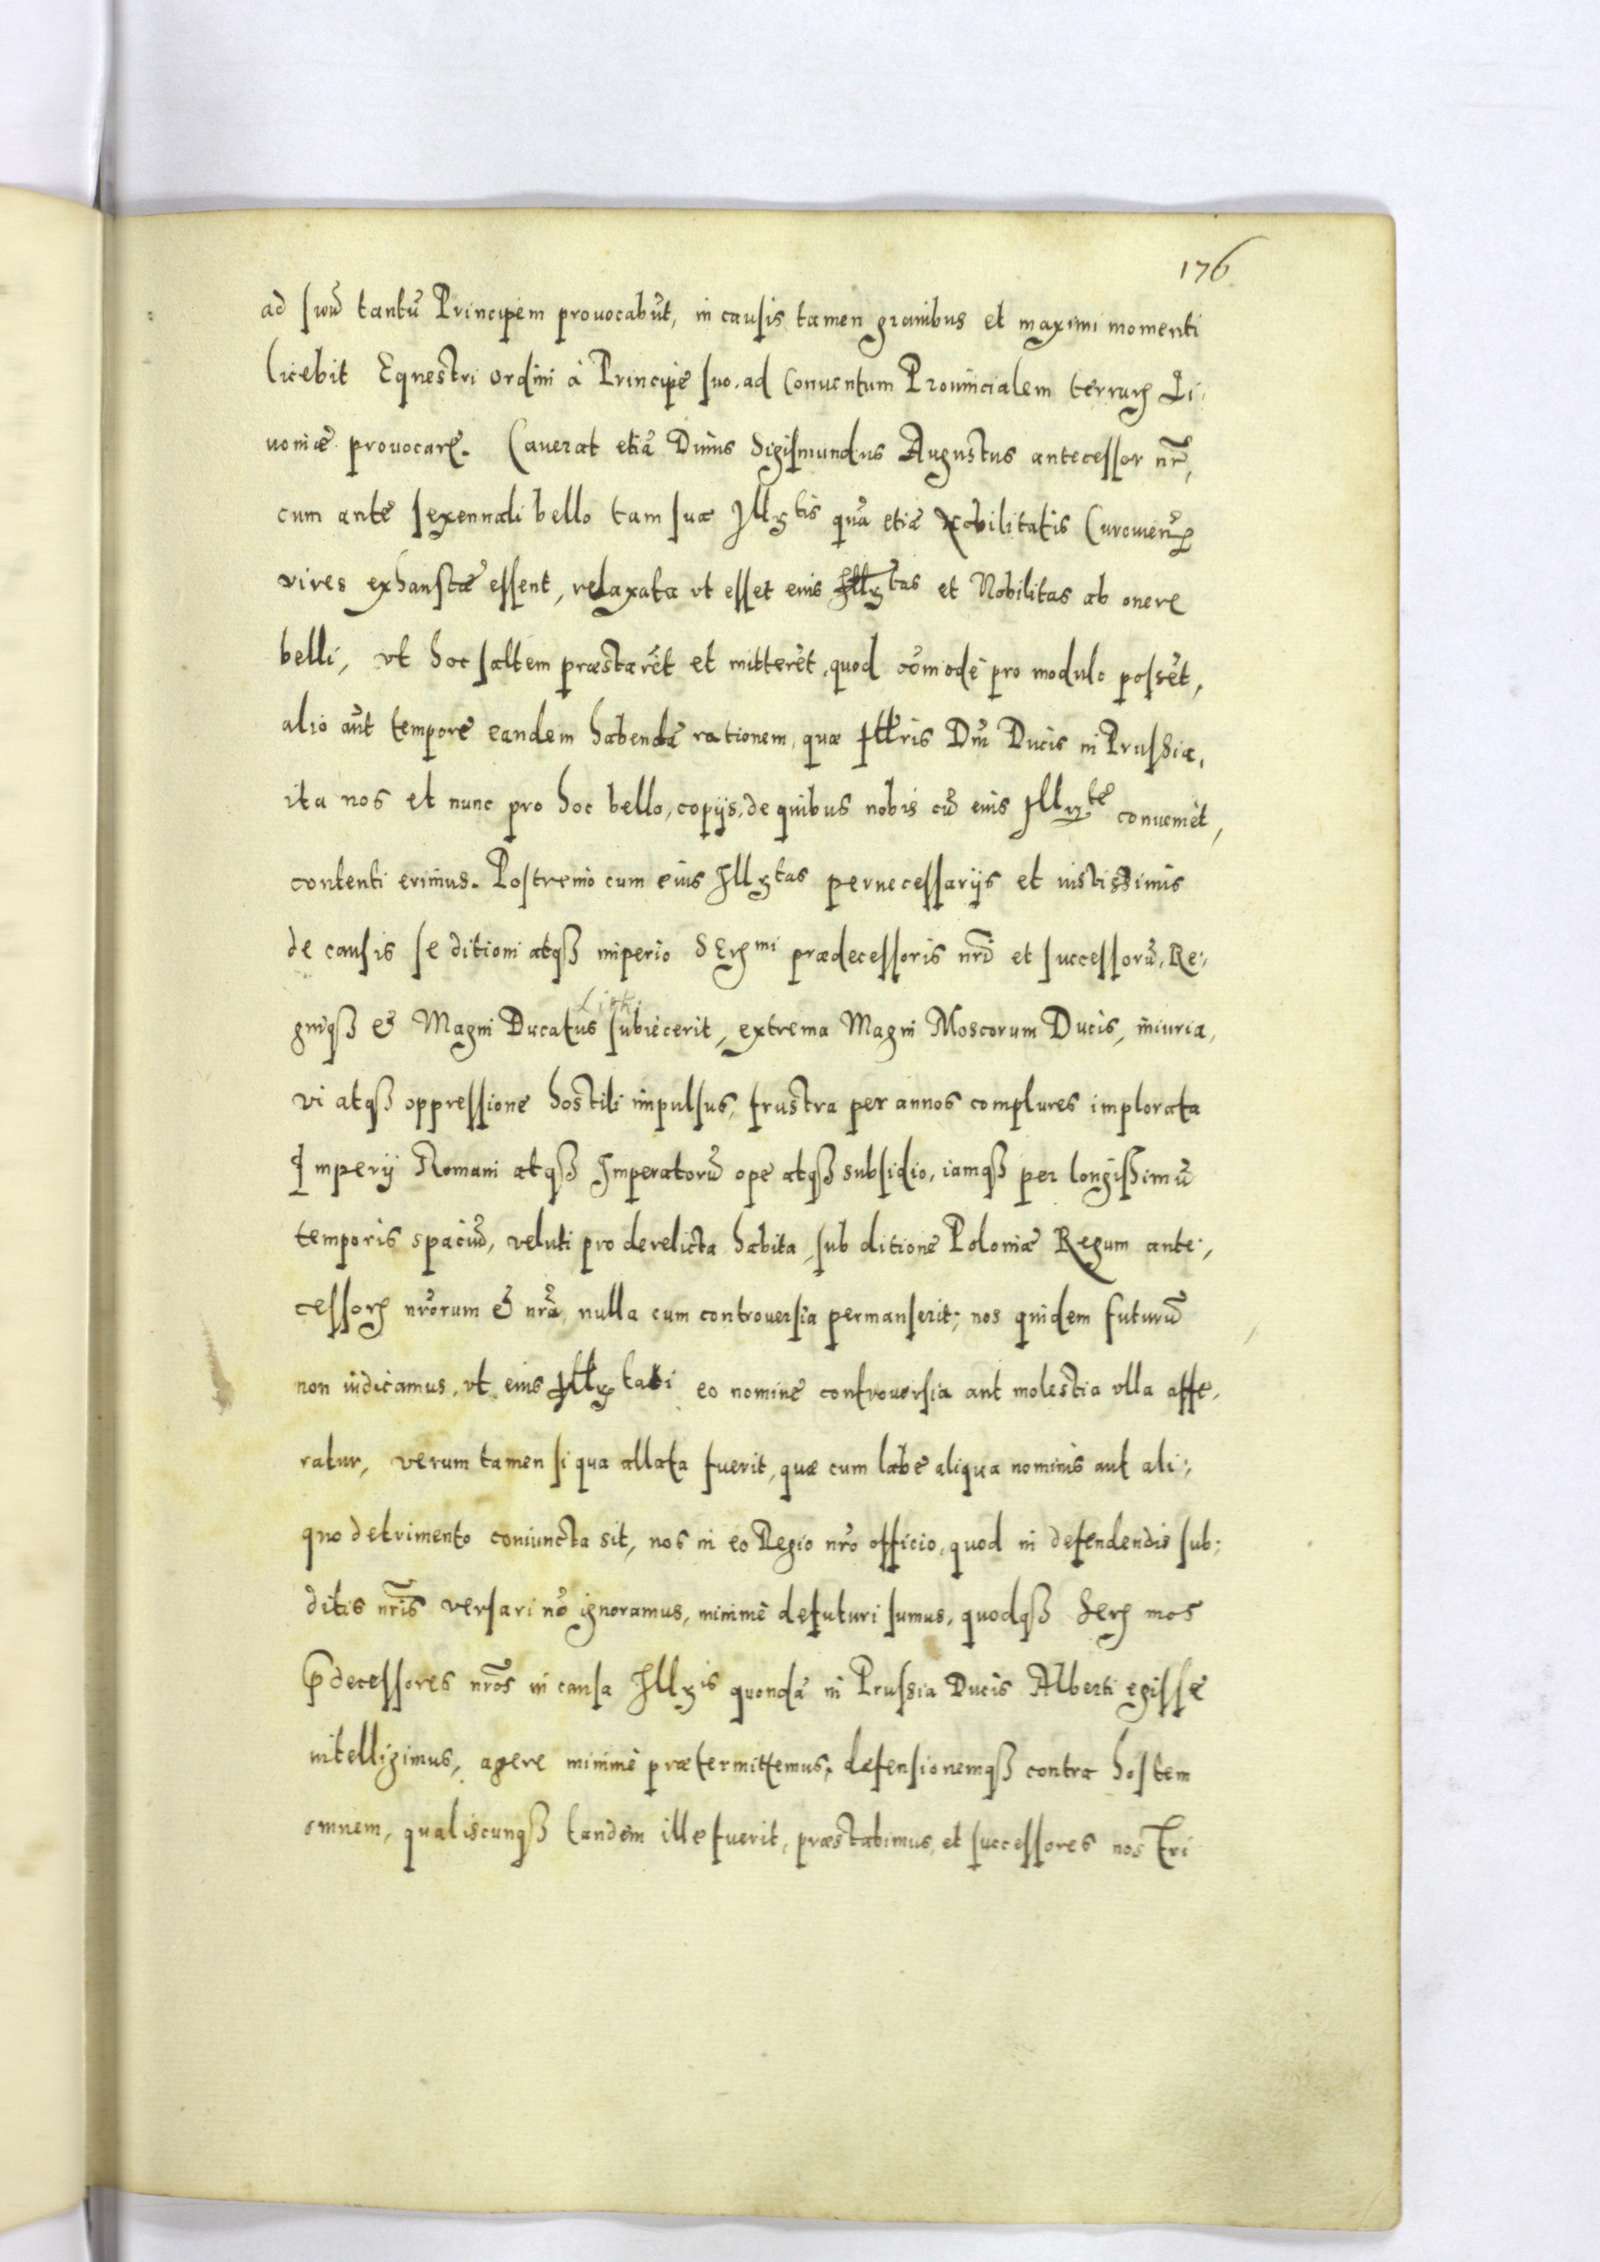 176
ad suũ tantũ Principem prouocabũt, in causis tamen grauibus et maximi momenti
licebit Equestri ordini à Principe suo ad Conuentum Prouincialem terrarũ Li-
uoniæ prouocare. Cauerat etiã Diuus Sigismundus Augustus antecessor nr̃,
cum ante sexennali bello tam suæ Illtis quã etiã Nobilitatis Curowien
vires exhaustæ essent, relaxata vt esset eius Illtas et Nobilitas ab onere
belli, vt hoc saltem præstarẽt et mitterẽt, quod cõmodè pro modulo possẽt,
alio aũt tempore eandem habendã rationem, quæ Illris Dñi Ducis in Prussia,
ita nos et nunc pro hoc bello, copijs, de quibus nobis cũ eius Illte conuenit,
contenti erimus. Postremò cum eius Illtas pernecessarijs et iustissimis
de causis se ditioni atqȝ imperio Sermi prædecessoris nr̃i et successorũ, Re-
gniqȝ & Magni Ducatus subiecerit, extrema Magni Moscorum Ducis, iniuria,
Lith:
vi atqȝ oppressione hostili impulsus, frustra per annos complures implorata
Imperij Romani atqȝ Imperatorũ ope atqȝ subsidio, iamqȝ per longissimũ
temporis spaciũ, veluti pro derelicta habita, sub ditione Poloniæ Regum ante-
cessorũ nr̃orum & nr̃a, nulla cum controuersia permanserit; nos quidem futurũ
non iudicamus, vt eius Illtati eo nomine controuersia aut molestia vlla affe-
ratur, verum tamen si qua allata fuerit, quæ cum labe aliqua nominis aut ali-
quo detrimento coniuncta sit, nos in eo Regio nr̃o officio, quod in defendendis sub-
ditis nr̃is versari nõ ignoramus, minimè defuturi sumus, quodqȝ Ser mos
p̃decessores nr̃os in causa Illis quondã in Prussia Ducis Alberti egisse
intelligimus, agere minimè prætermittemus, defensionemqȝ contra hostem
omnem, qualiscunqȝ tandem ille fuerit, præstabimus, et successores nostri